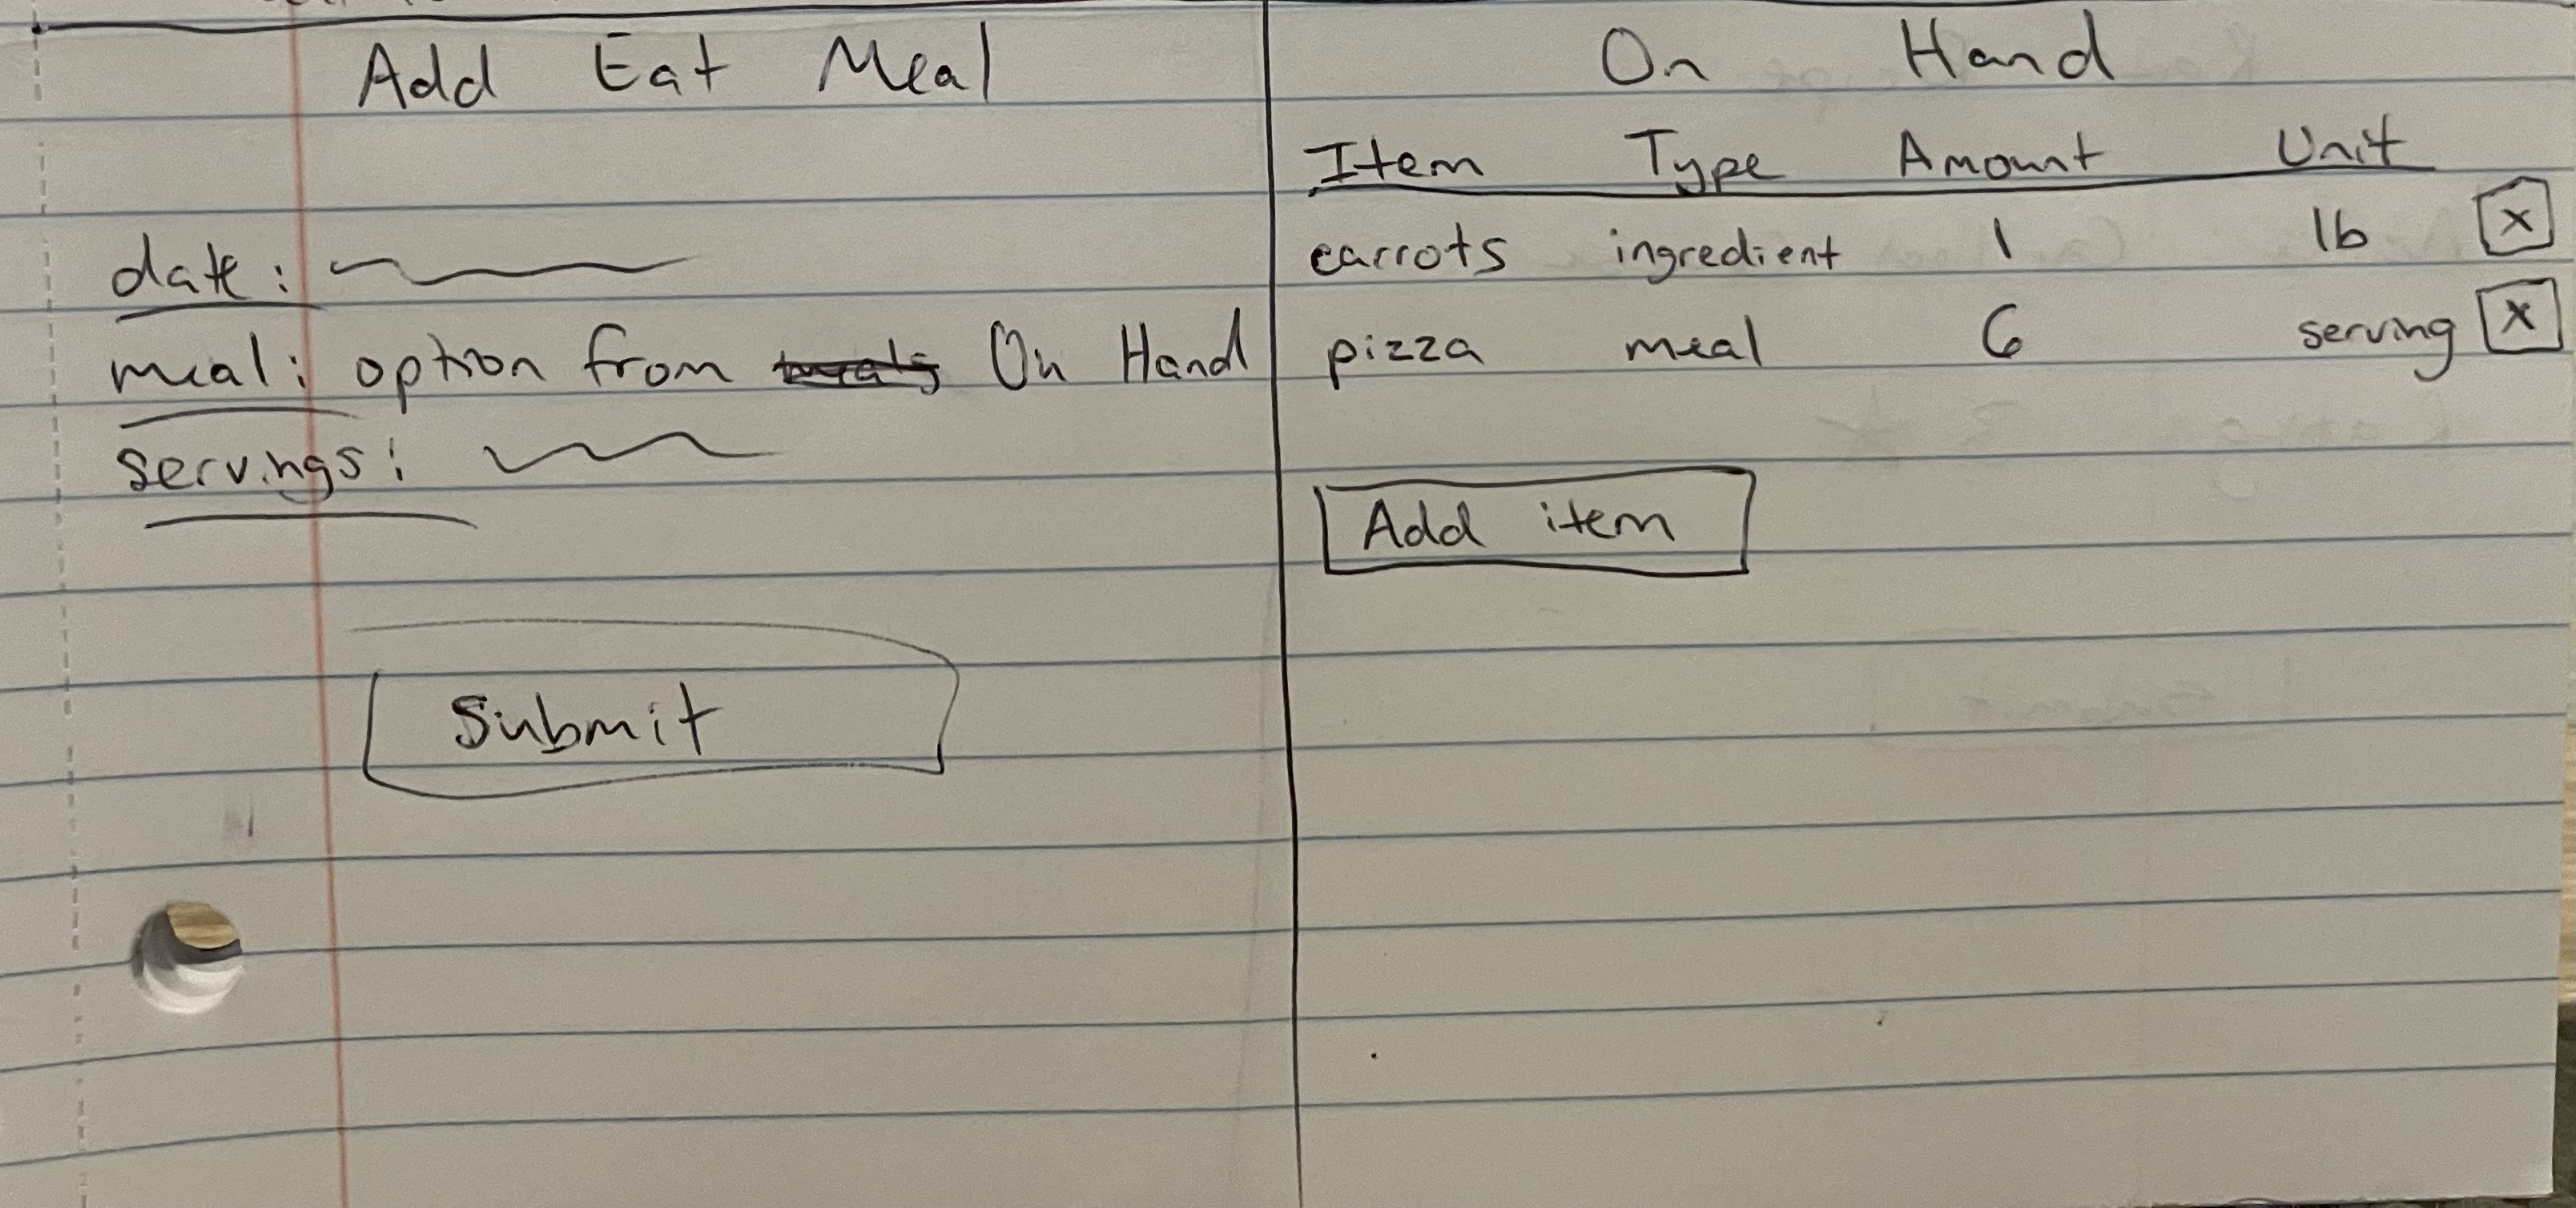 Add Eat Meal
date:
meal: option from On Hand
servings:
Submit
On Hand
Item Type Amount Unit
carrots ingredient 1 lb x
pizza meal 6 serving x
Add item